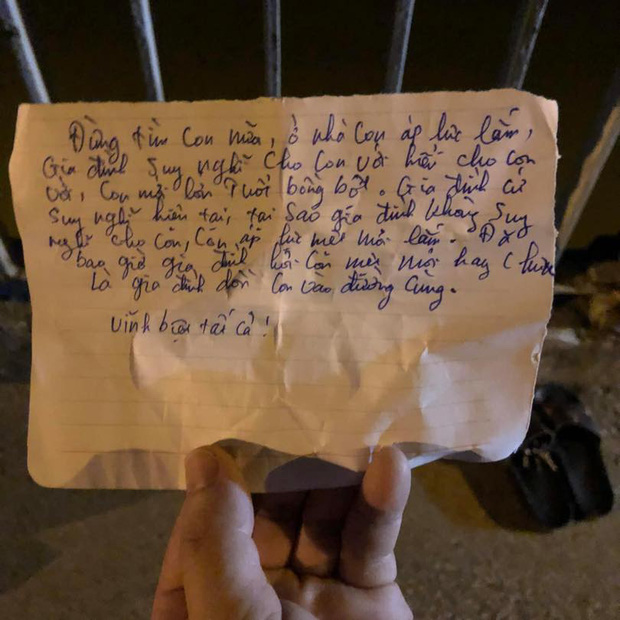 Đừng tìm con nữa, ở nhà con áp lực lắm,
Gia đình suy nghĩ cho con với hiểu cho con
với, con mới hơn 7 tuổi bồng bột. Gia đình cứ
suy nghĩ hiện tại, tại sao gia đình không suy
nghĩ cho con, con áp lực mệt mỏi lắm. Đã
bao giờ gia đình hỏi con mệt mỏi hay chưa
là gia đình dồn con vào đường cùng.
Vĩnh biệt tất cả!